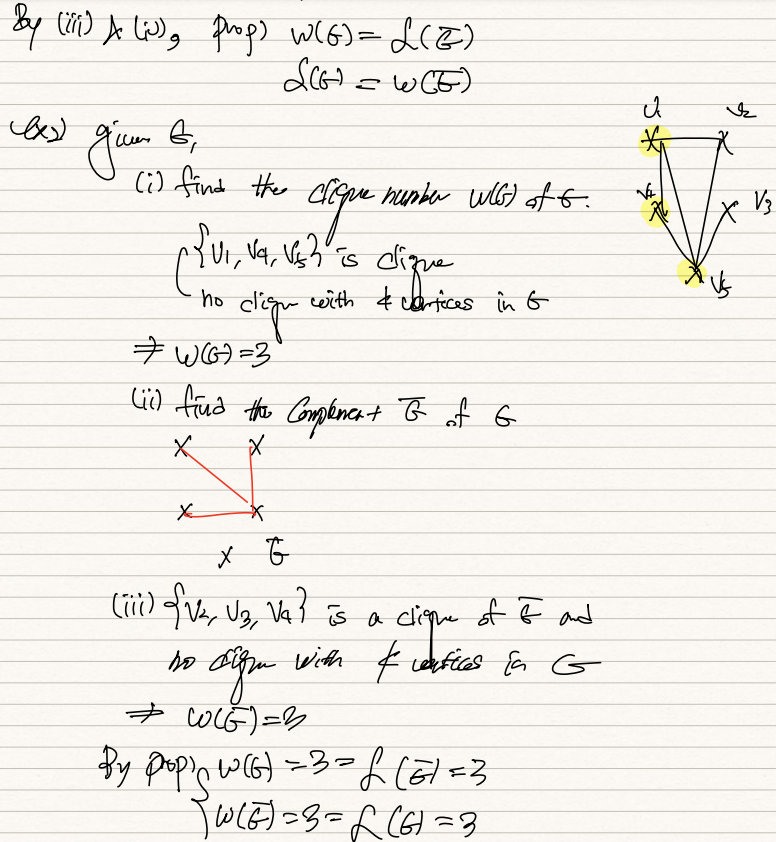 By (iii) & (iv), prop) ω(G) = α(G̅)
α(G) = ω(G̅)
ex2) given G,
(i) find the clique number ω(G) of G.
{V1, V4, V5} is clique
no clique with 4 vertices in G
⇒ ω(G) = 3
(ii) find the Complement G̅ of G
G̅
(iii) {V2, V3, V4} is a clique of G̅ and
no clique with 4 vertices in G
⇒ ω(G̅) = 3
By prop) ω(G) = 3 = α(G̅) = 3
ω(G̅) = 3 = α(G) = 3
V1 V2
V4 V3
V5